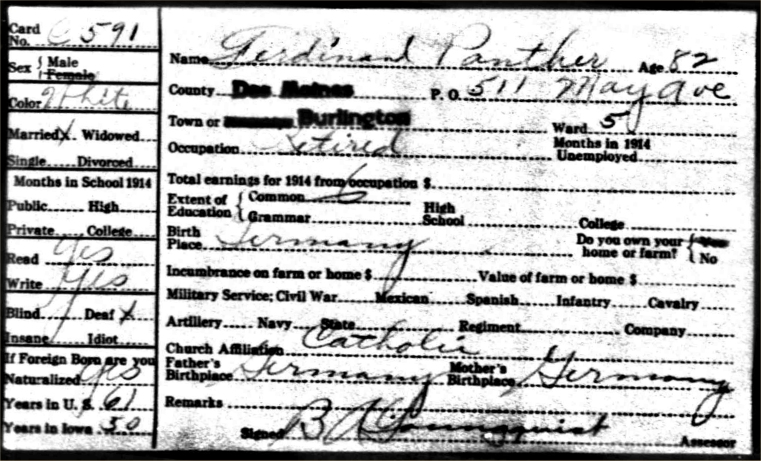 Card No. C591
Sex { Male Female
Color White
Married X Widowed
Single Divorced
Months in School 1914
Public High
Private College
Read Yes
Write Yes
Blind Deaf X
Insane Idiot
If Foreign Born are you
Naturalized Yes
Years in U. S. 61
Years in Iowa 50
Name Ferdinand Panther Age 82
County Des Moines P. O. 511 May Ave
Town or Burlington Ward 5
Occupation Retired Months in 1914 Unemployed
Total earnings for 1914 from occupation $
Extent of Education { Common 6 Grammar High School College
Birth Place Germany Do you own your home or farm? { Yes No
Incumbrance on farm or home $ Value of farm or home $
Military Service; Civil War Mexican Spanish Infantry Cavalry
Artillery Navy State Regiment Company
Church Affiliation Catholic
Father's Birthplace Germany Mother's Birthplace Germany
Remarks
Signed B Assessor